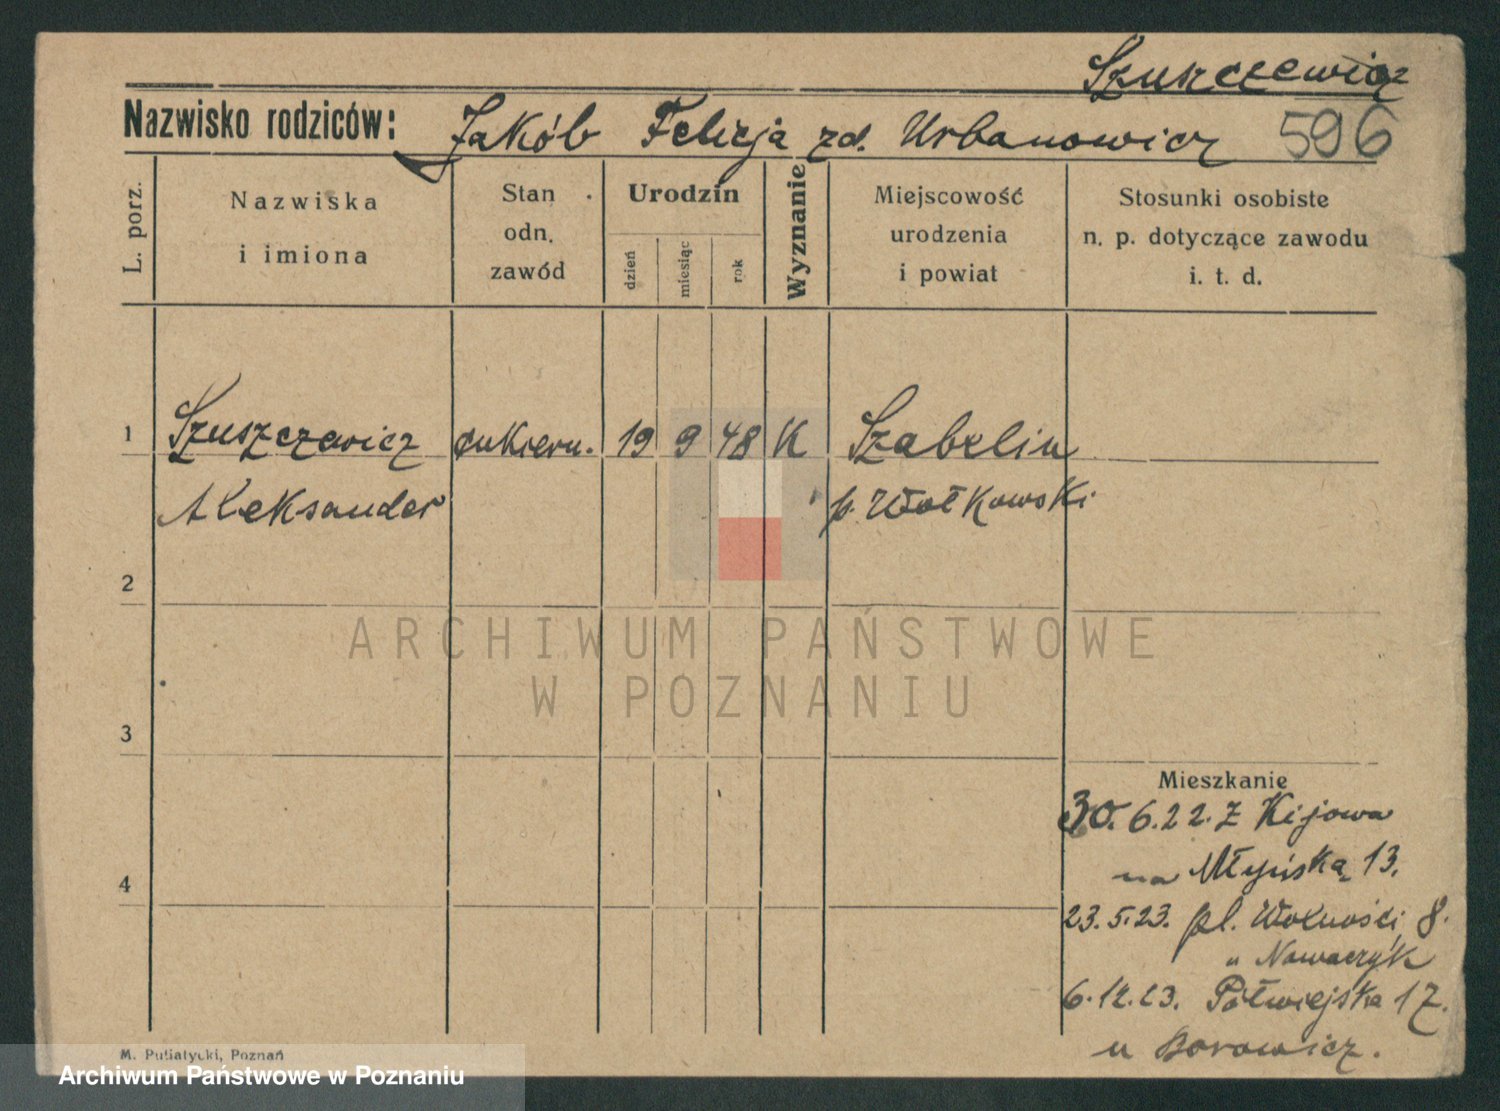 Szuszczewicz
Nazwisko rodziców: Jakób Felicja zd. Urbanowicz 596
L. porz.
Nazwiska
i imiona
Stan
odn.
zawód
Urodzin
dzień
miesiąc
rok
Wyznanie
Miejscowość
urodzenia
i powiat
Stosunki osobiste
n. p. dotyczące zawodu
i. t. d.
1 Szuszczewicz cukiern. 19 9 48 K Szabelin
Aleksander p. Wołkowski
2
ARCHIWUM PAŃSTWOWE
W POZNANIU
3
Mieszkanie
30.6.22. z Kijowa
na Młyńską 13.
4
23.5.23. pl. Wolności 8.
u Nowaczyk
6.12.23. Półwiejska 17.
u Borowicz.
M. Putiatycki, Poznań
Archiwum Państwowe w Poznaniu